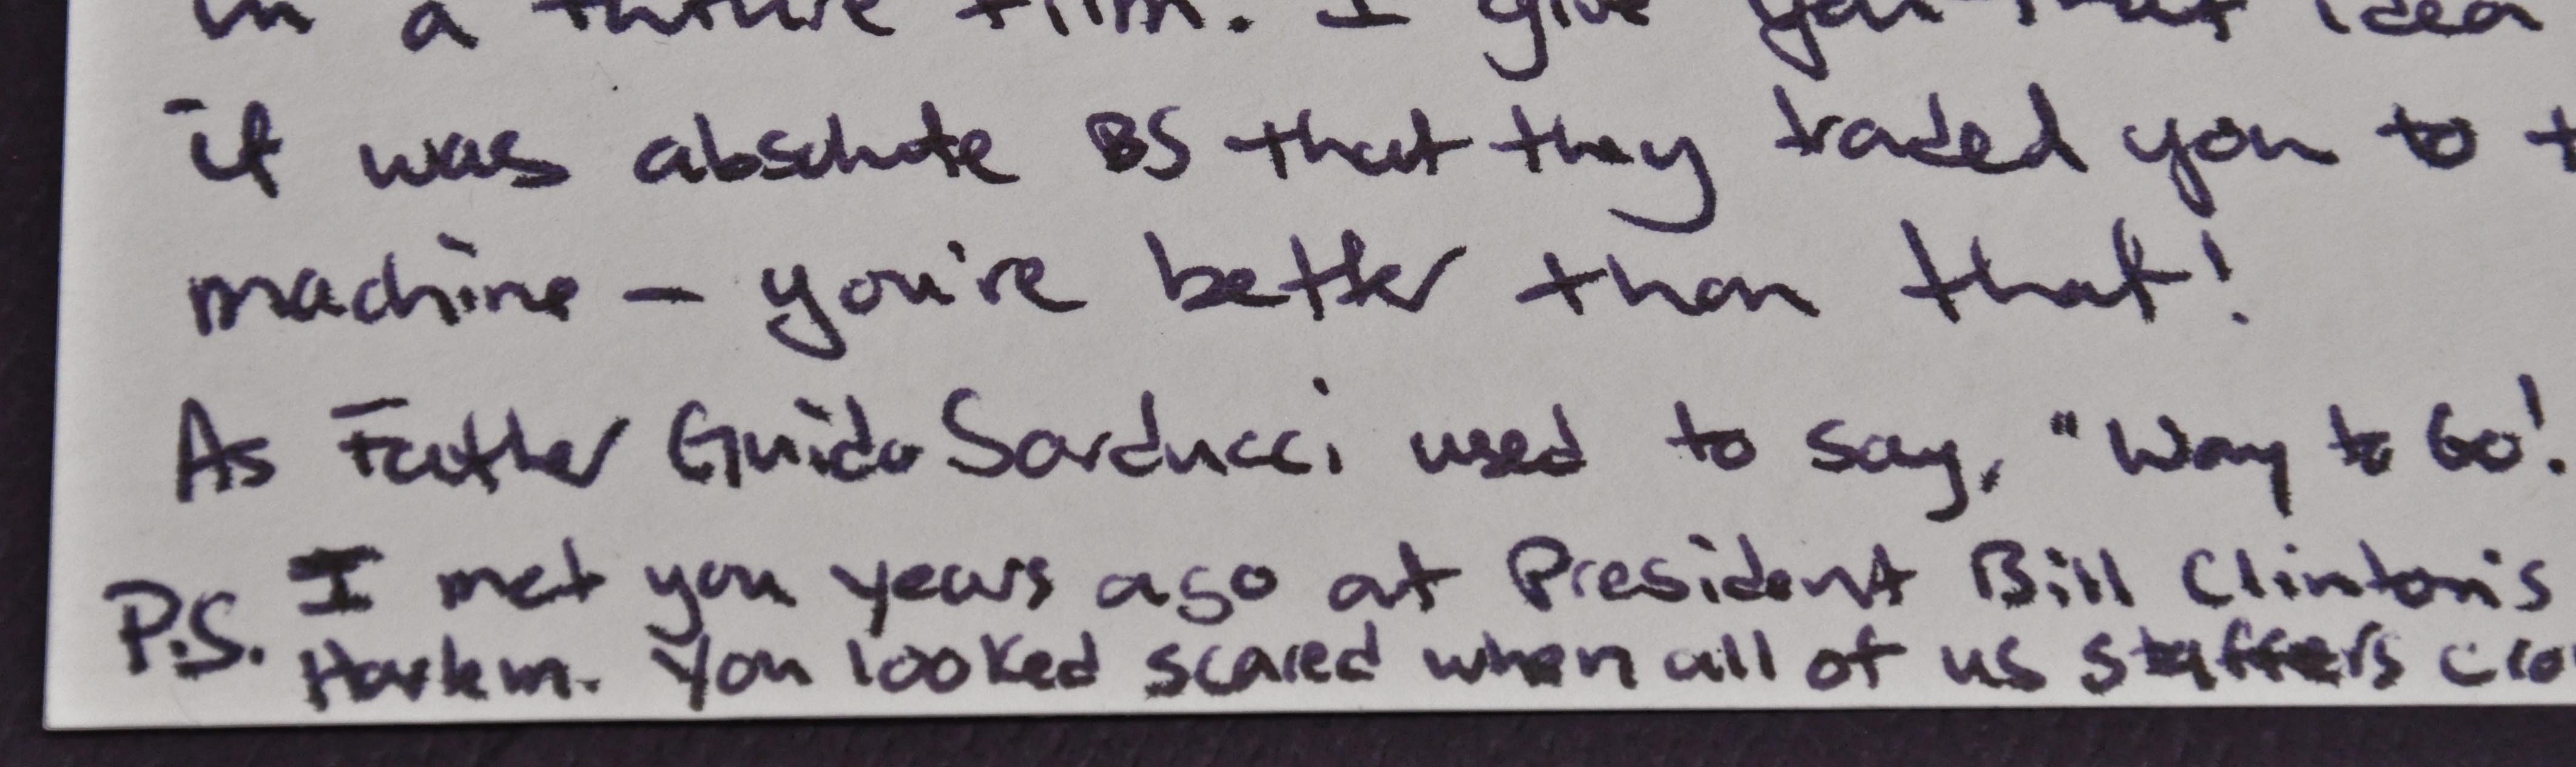 in a future film. I give you that idea
it was absolute BS that they traded you to
machine – you're better than that!
As Father Guido Sarducci used to say, "Way to Go!
P.S. I met you years ago at President Bill Clinton's
Harlem. You looked scared when all of us staffers